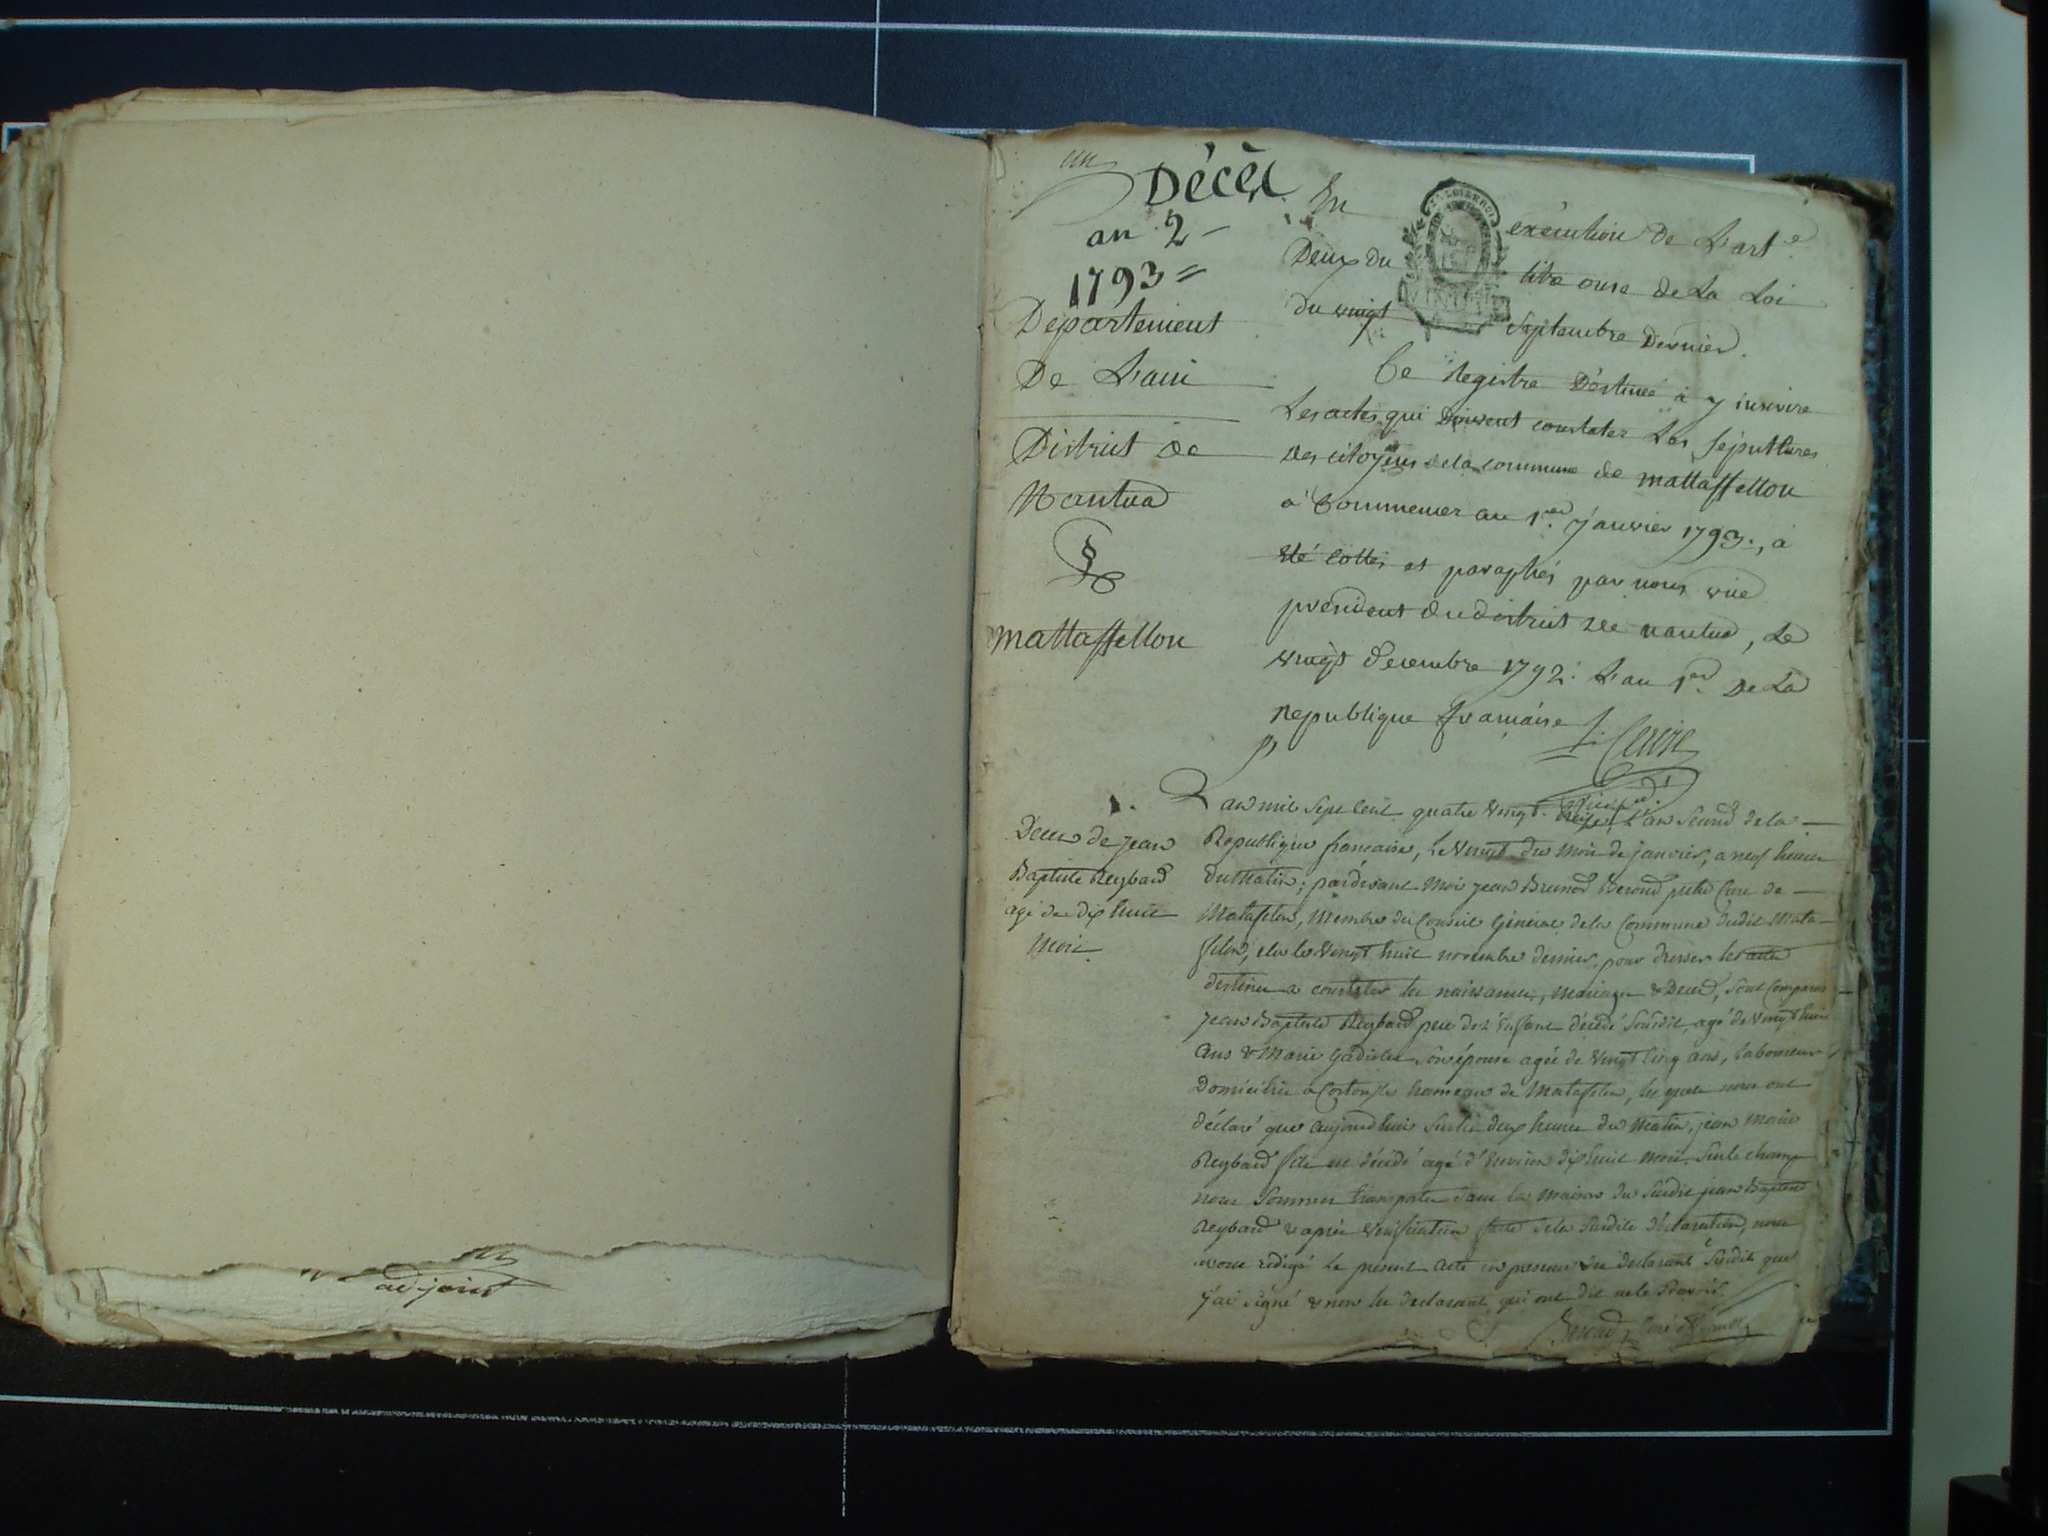 adjoint
un
Décès
an 2
1793
Département
De L'ain
District de
Nantua
§
mattaffellon
En exécution de L'art.e
Deux du titre onse de La Loi
du vingt Septembre Dernier.
Ce Registre Déstiné à y inscrire
Les actes qui Doivent constater Les sépultures
Des citoyens de la commune de mattaffellon
à Commencer au 1.er janvier 1793., à
été cottés et paraphés par nous vice
président du district de nantua, Le
vingt decembre 1792. L'an 1.er De La
Republique francaise
1.
Deces de jean
Baptiste Reybard
agé de dix huit
mois
L'an mil sept cent quatre vingt treize, L'an second de la
Republique francaise, le vingt du mois de janvier, a neuf heures
du matin; pardevant moi jean Brunod Beroud curé de
Matafelon, membre du Conseil Général de la Commune dudit Mata-
felon, elu le vingt huit novembre dernier pour dresser les actes
destinés a constater les naissances, mariages & Deces, sont comparus
jean Baptiste Reybard pere de l'enfant décédé susdit, agé de vingt huit
ans & Marie son épouse agée de vingt cinq ans, laboureurs
Domiciliés a hameau de Matafelon, lesquels nous ont
déclaré que aujourd'hui deux heures du matin, jean Marie
Reybard fils est décédé agé d'environ dixhuit mois. Sur le champ
nous sommes transportés dans la maison du susdit jean Baptiste
Reybard & après vérification faite de la susdite déclaration, nous
avons rédigé le présent acte en presence des declarants susdits que
j'ai signé & non les declarants qui ont dit ne le savoir.